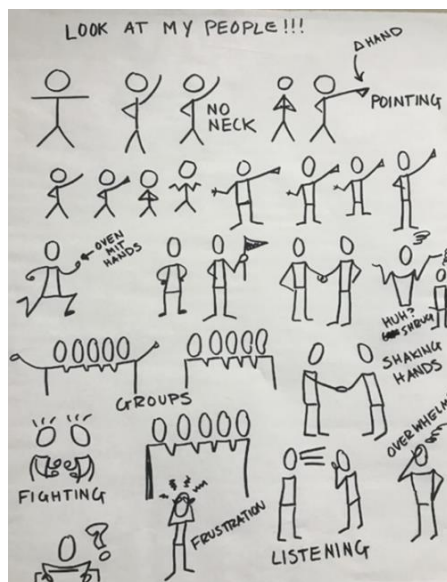 LOOK AT MY PEOPLE!!!
△HAND
NO
NECK
POINTING
OVEN
MIT
HANDS
HUH?
SHRUG
GROUPS
SHAKING
HANDS
FIGHTING
FRUSTRATION
LISTENING